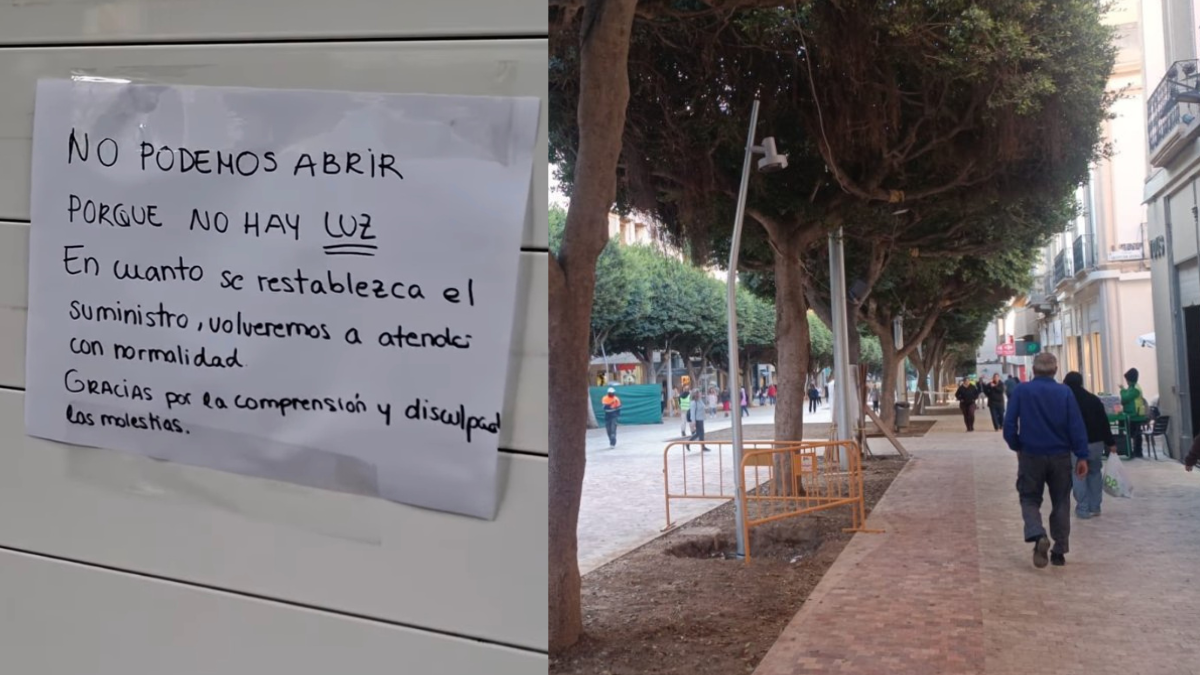 NO PODEMOS ABRIR
PORQUE NO HAY LUZ
En cuanto se restablezca el
suministro, volveremos a atender
con normalidad.
GRACIAS por la comprensión y disculpad
las molestias.